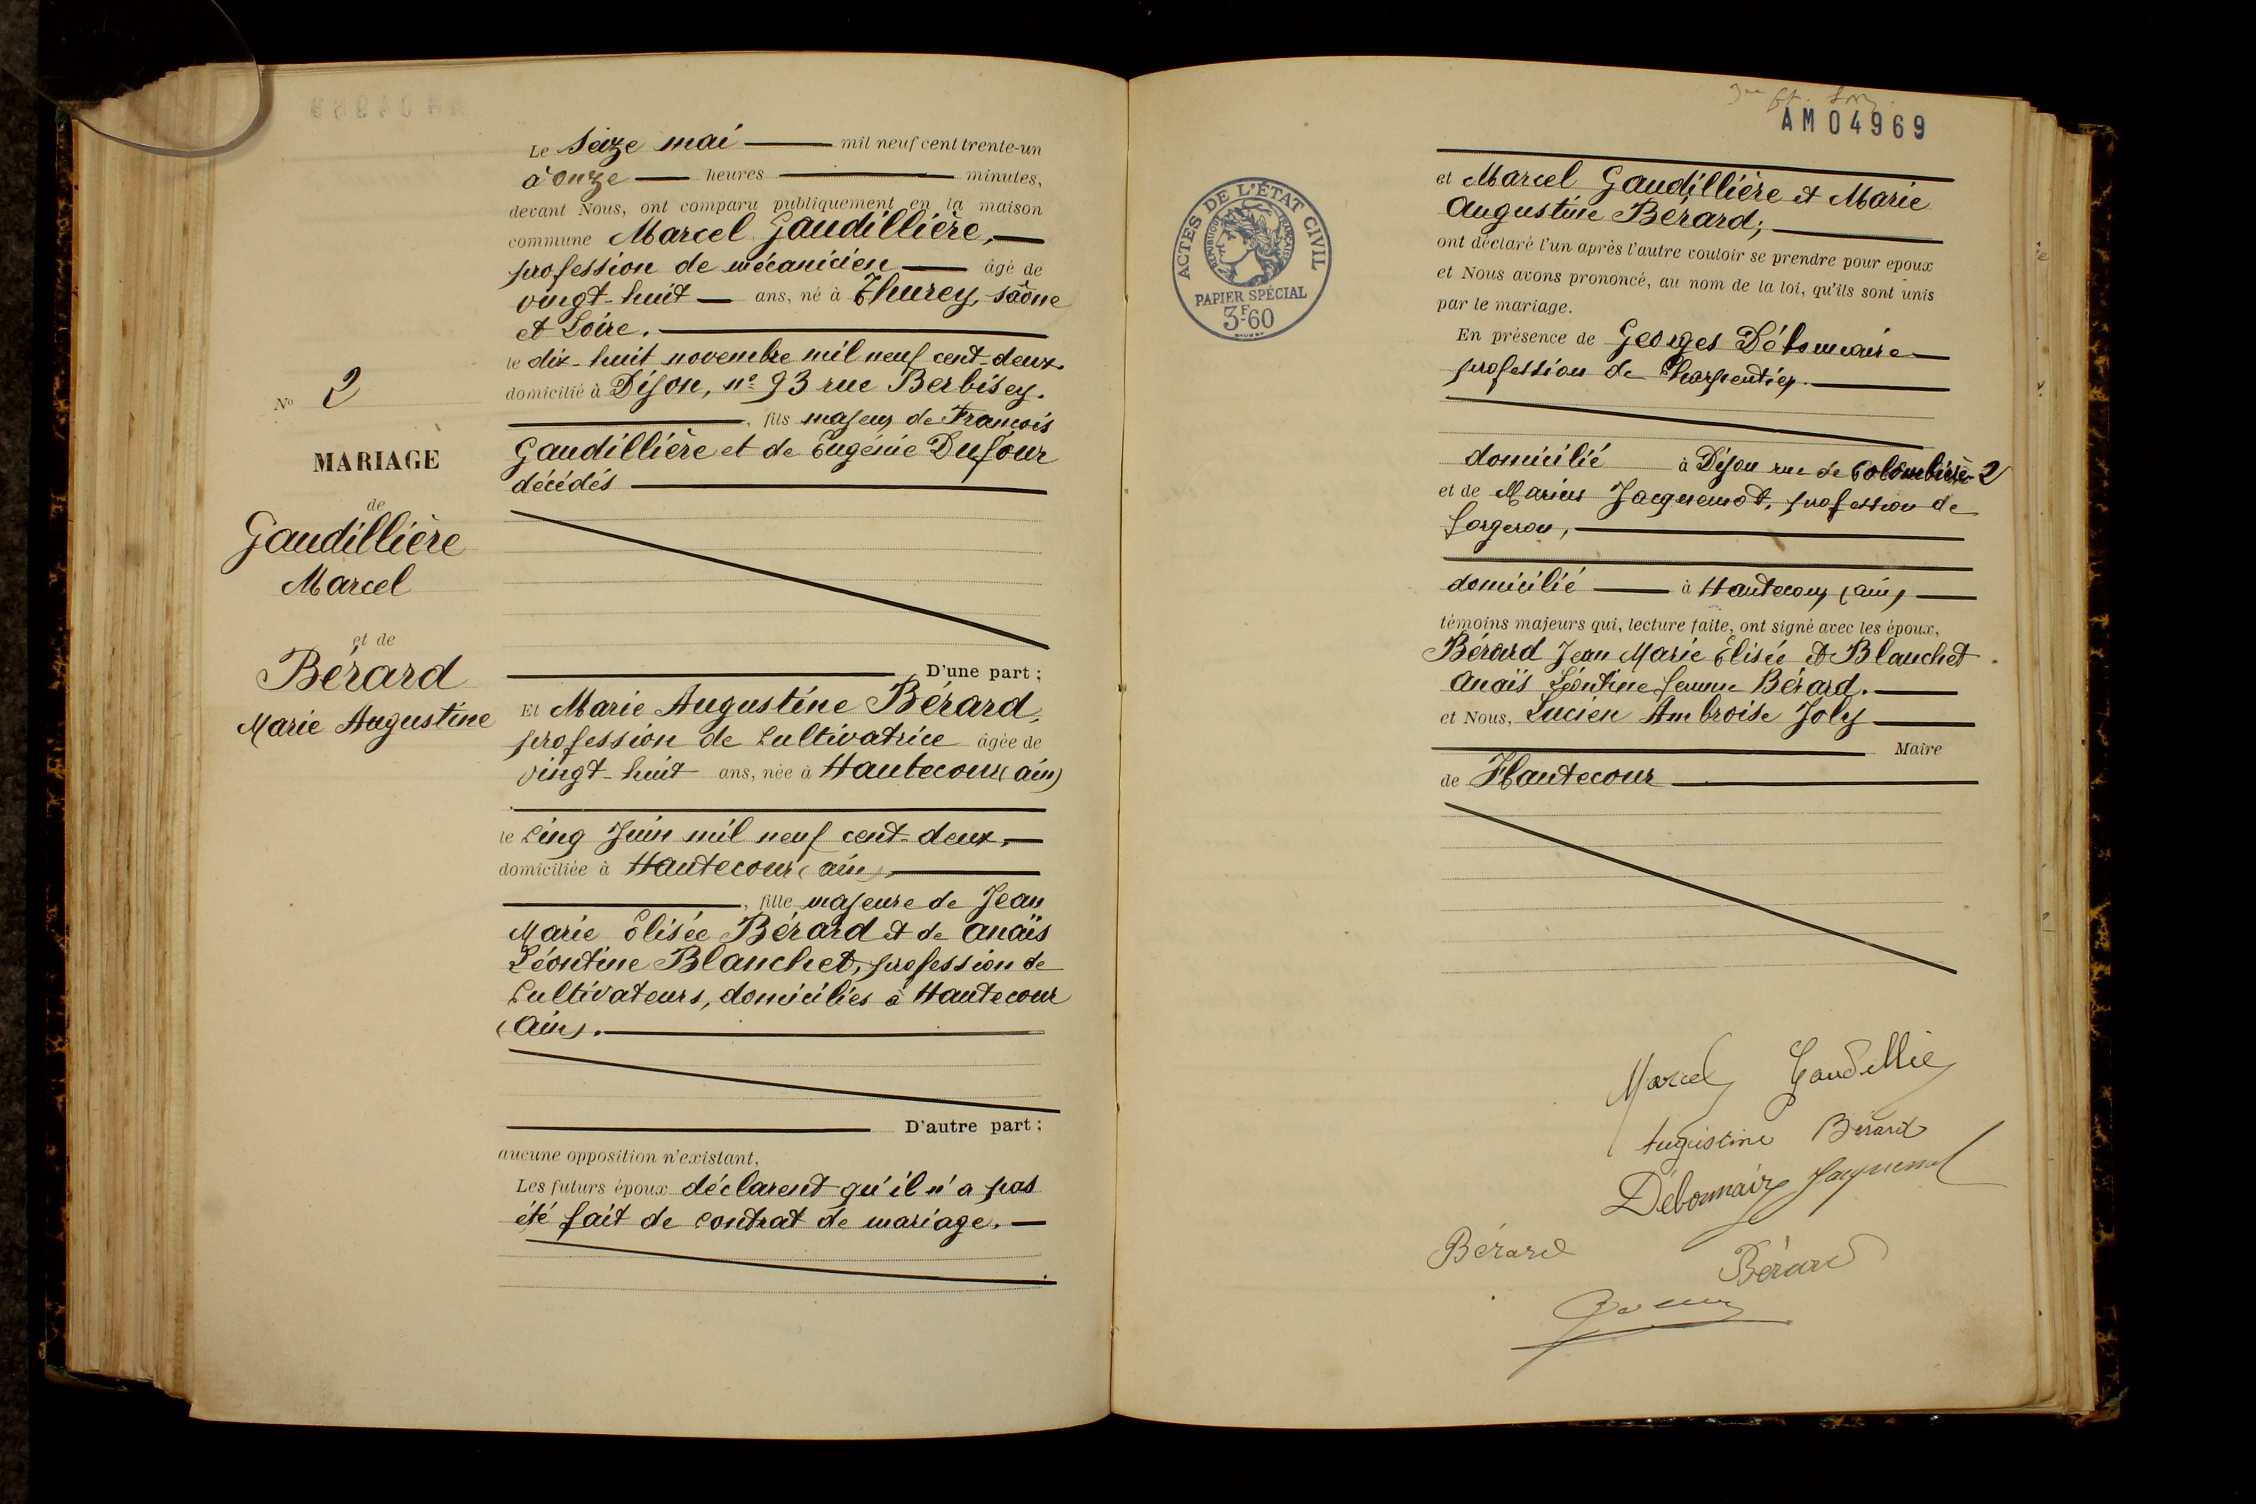 Le Seize mai mil neuf cent trente-un
à onze heures minutes,
devant Nous, ont comparu publiquement en la maison
commune Marcel Gaudillière,
profession de mécanicien âgé de
vingt-huit ans, né à Thurey, Saône
et Loire.
le dix-huit novembre mil neuf cent-deux.
domicilié à Dijon, n° 93 rue Berbisey.
, fils majeur de François
Gaudillière et de Eugénie Dufour
décédés
N° 2
MARIAGE
de
Gaudillière
Marcel
et de
Bérard
Marie Augustine
D'une part;
Et Marie Augustine Bérard,
profession de Cultivatrice âgée de
vingt-huit ans, née à Hautecour (ain)
le Cinq Juin mil neuf cent-deux,
domiciliée à Hautecour (ain),
, fille majeure de Jean
Marie Elisée Bérard et de Anaïs
Léontine Blanchet, profession de
Cultivateurs, domiciliés à Hautecour
(Ain).
D'autre part;
aucune opposition n'existant,
Les futurs époux déclarent qu'il n'a pas
été fait de contrat de mariage.
AM04969
ACTES DE L'ÉTAT CIVIL
RÉPUBLIQUE FRANÇAISE
PAPIER SPÉCIAL
3F.60
et Marcel Gaudillière et Marie
Augustine Bérard;
ont déclaré l'un après l'autre vouloir se prendre pour époux
et Nous avons prononcé, au nom de la loi, qu'ils sont unis
par le mariage.
En présence de Georges Débonnaire
profession de Charpentier.
domicilié à Dijon rue de Colombière 2
et de Marius Jacquemot, profession de
forgeron,
domicilié à Hautecour (ain)
témoins majeurs qui, lecture faite, ont signé avec les époux,
Bérard Jean Marie Elisée et Blanchet
Anaïs Léontine femme Bérard.
et Nous, Lucien Ambroise Joly
Maire
de Hautecour
Marcel Gaudillie
Augustine Bérard
Débonnaire Jacquemot
Bérard Bérard